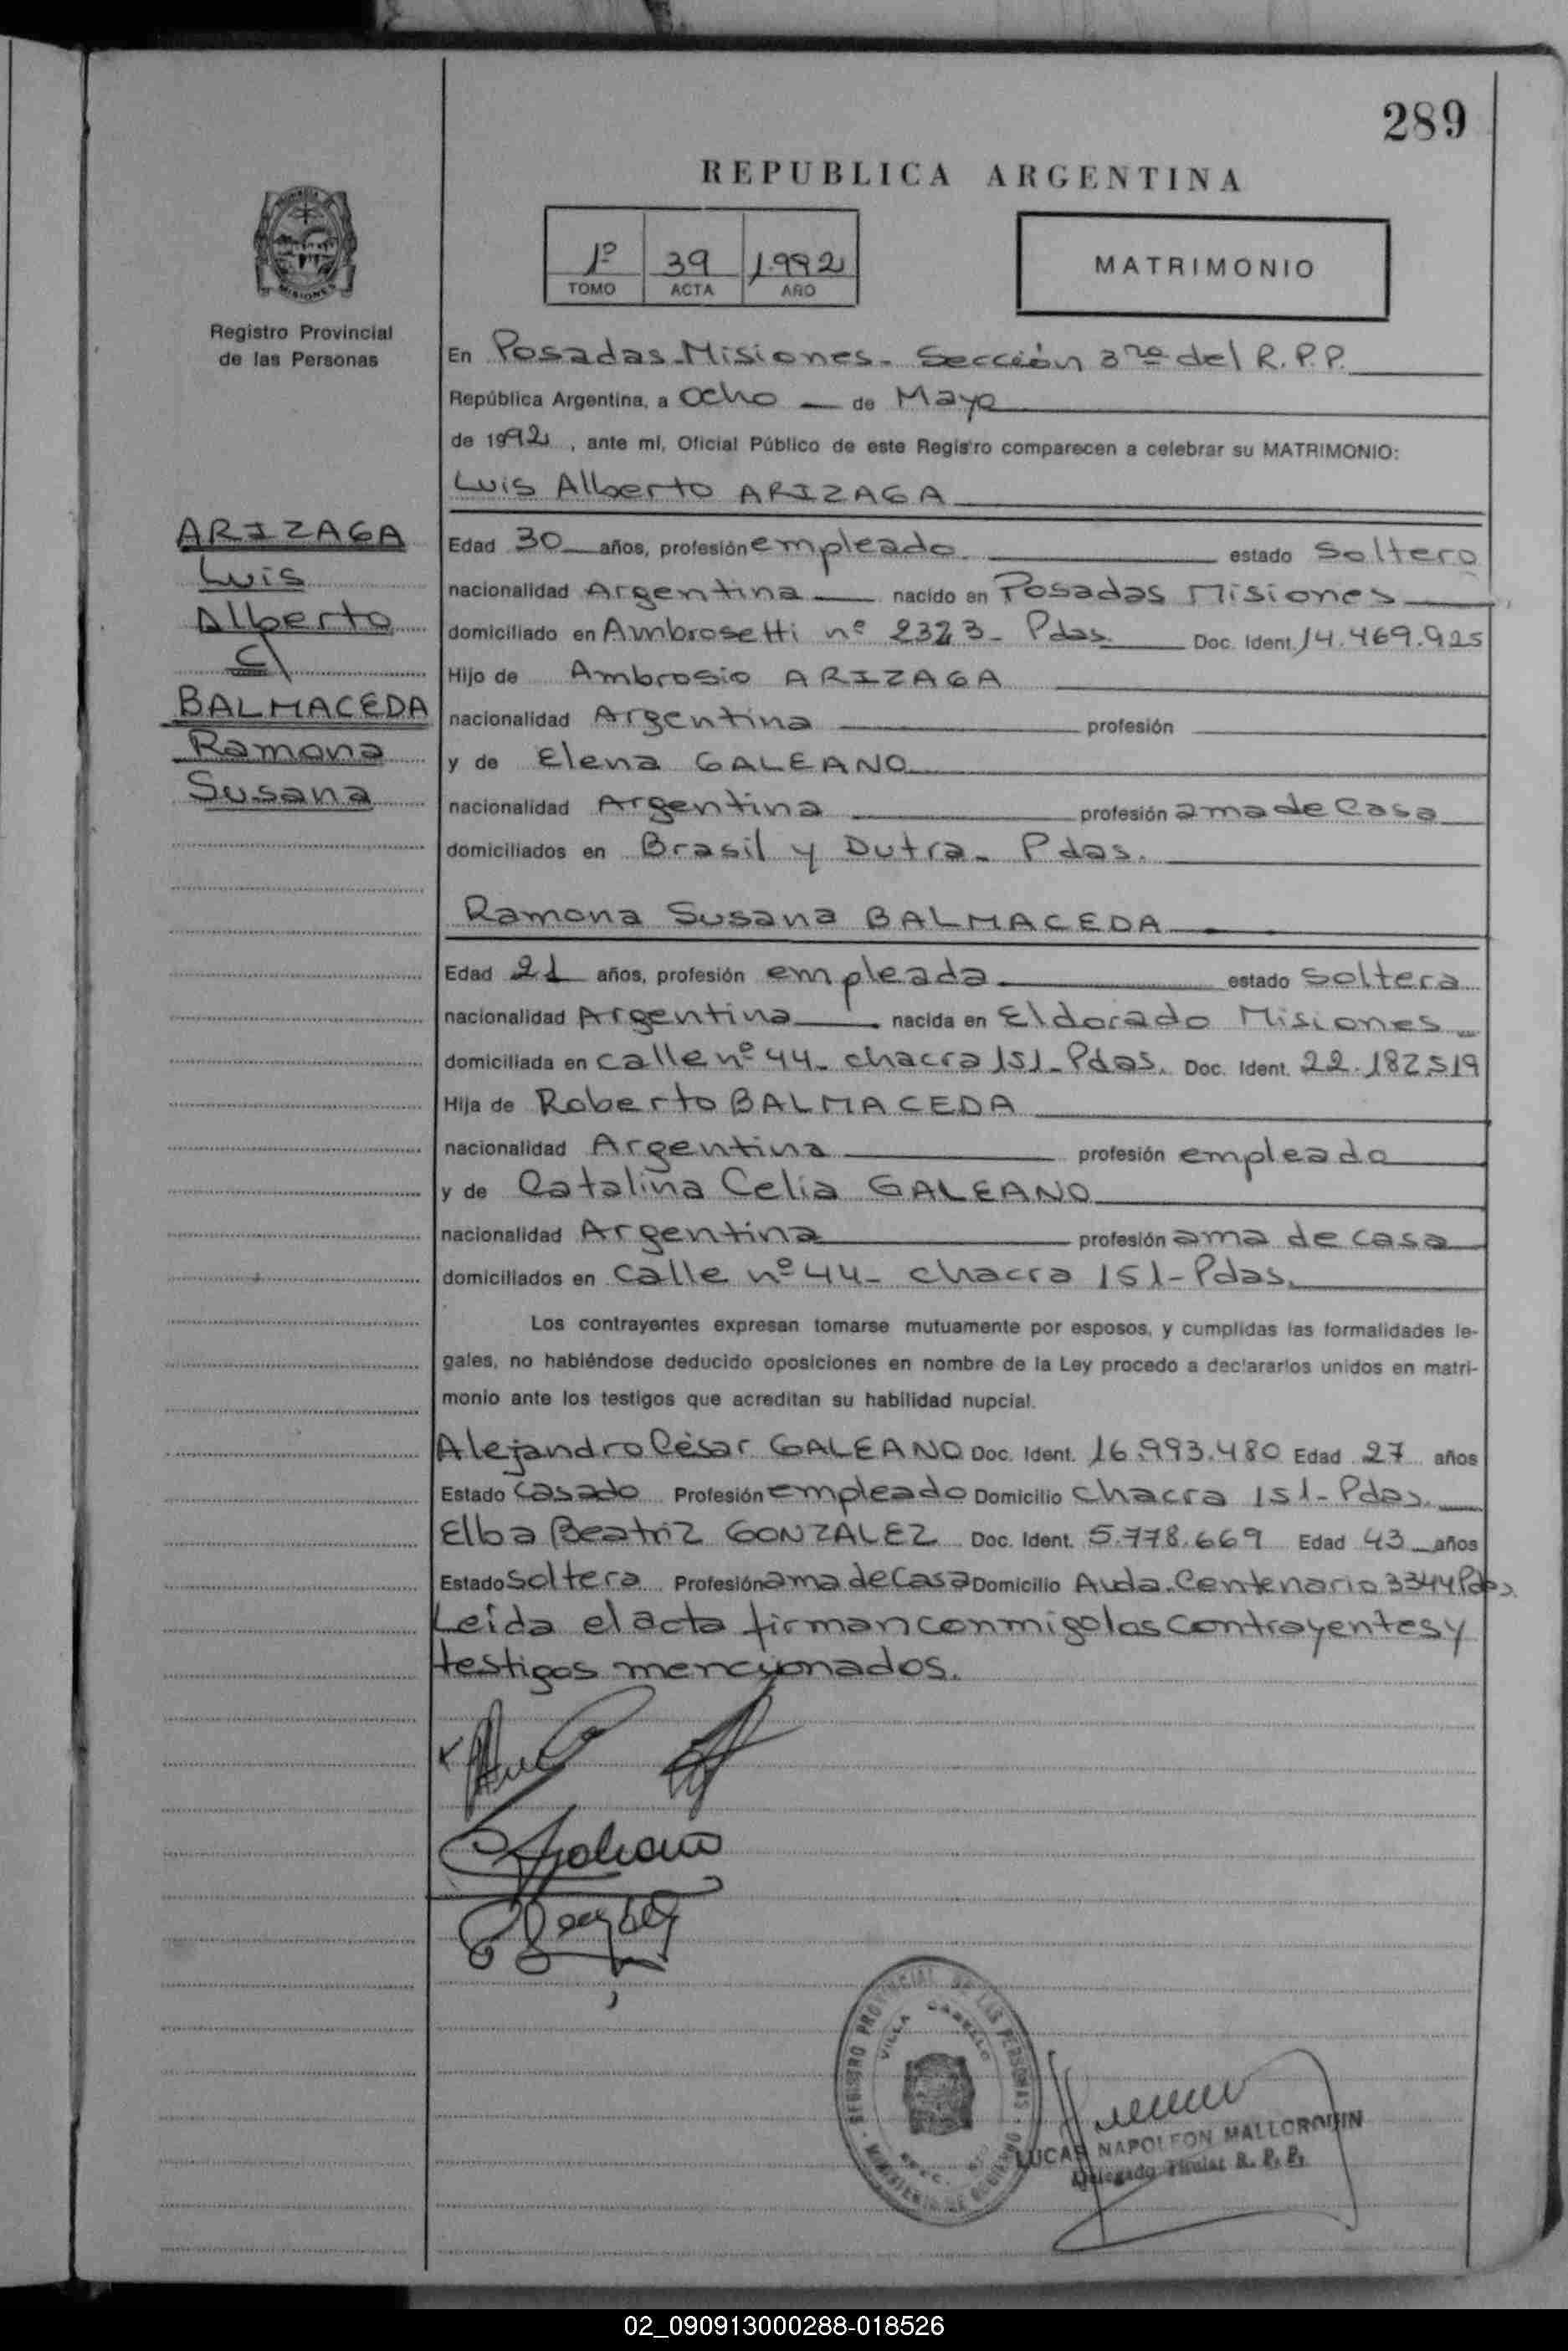 289
REPUBLICA ARGENTINA
1º 39 1.992
TOMO ACTA AÑO
MATRIMONIO
MISIONES
Registro Provincial
de las Personas
En Posadas-Misiones- Sección 3ra del R.P.P.
República Argentina, a Ocho de Mayo
de 1992, ante mí, Oficial Público de este Registro comparecen a celebrar su MATRIMONIO:
Luis Alberto ARIZAGA
ARIZAGA
Luis
Alberto
c/
BALMACEDA
Ramona
Susana
Edad 30 años, profesión empleado estado Soltero
nacionalidad Argentina nacido en Posadas Misiones
domiciliado en Ambrosetti nº 2323- Pdas. Doc. Ident. 14.469.925
Hijo de Ambrosio ARIZAGA
nacionalidad Argentina profesión
y de Elena GALEANO
nacionalidad Argentina profesión ama de Casa
domiciliados en Brasil y Dutra- Pdas.
Ramona Susana BALMACEDA
Edad 21 años, profesión empleada estado Soltera
nacionalidad Argentina nacida en Eldorado Misiones
domiciliada en Calle nº 44- chacra 151- Pdas. Doc. Ident. 22.182.519
Hija de Roberto BALMACEDA
nacionalidad Argentina profesión empleado
y de Catalina Celia GALEANO
nacionalidad Argentina profesión ama de casa
domiciliados en Calle nº 44- chacra 151- Pdas.
Los contrayentes expresan tomarse mutuamente por esposos, y cumplidas las formalidades le-
gales, no habiéndose deducido oposiciones en nombre de la Ley procedo a declararlos unidos en matri-
monio ante los testigos que acreditan su habilidad nupcial.
Alejandro César GALEANO Doc. Ident. 16.993.480 Edad 27 años
Estado Casado Profesión empleado Domicilio Chacra 151- Pdas.
Elba Beatriz GONZALEZ Doc. Ident. 5.778.669 Edad 43 años
Estado Soltera Profesión ama de Casa Domicilio Avda. Centenario 3344 Pdas.
Leída el acta firman conmigo los contrayentes y
testigos mencionados.
REGISTRO PROVINCIAL DE LAS PERSONAS
VILLA CABELLO
MINISTERIO DE GOBIERNO
LUCAS NAPOLEON MALLORQUIN
Delegado Titular R. P. P.
02_090913000288-018526